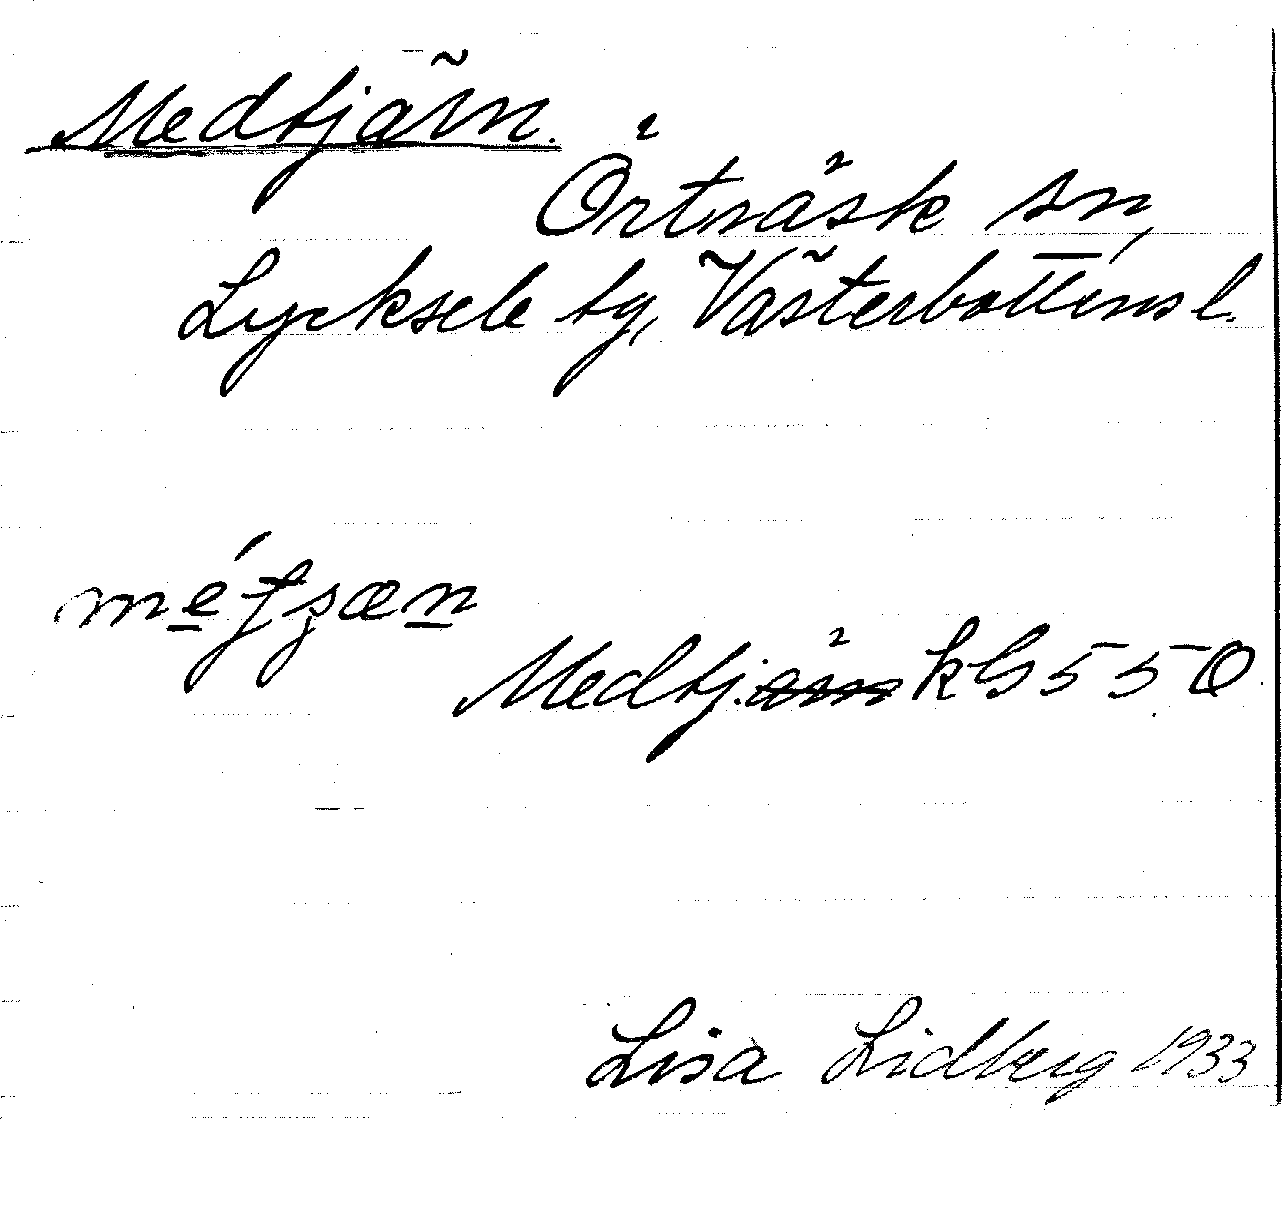 Medtjärn.
Örträsk sn,
Lycksele tg, Västerbottens l.
Medtj. kG 550
Lisa Lidberg 1933